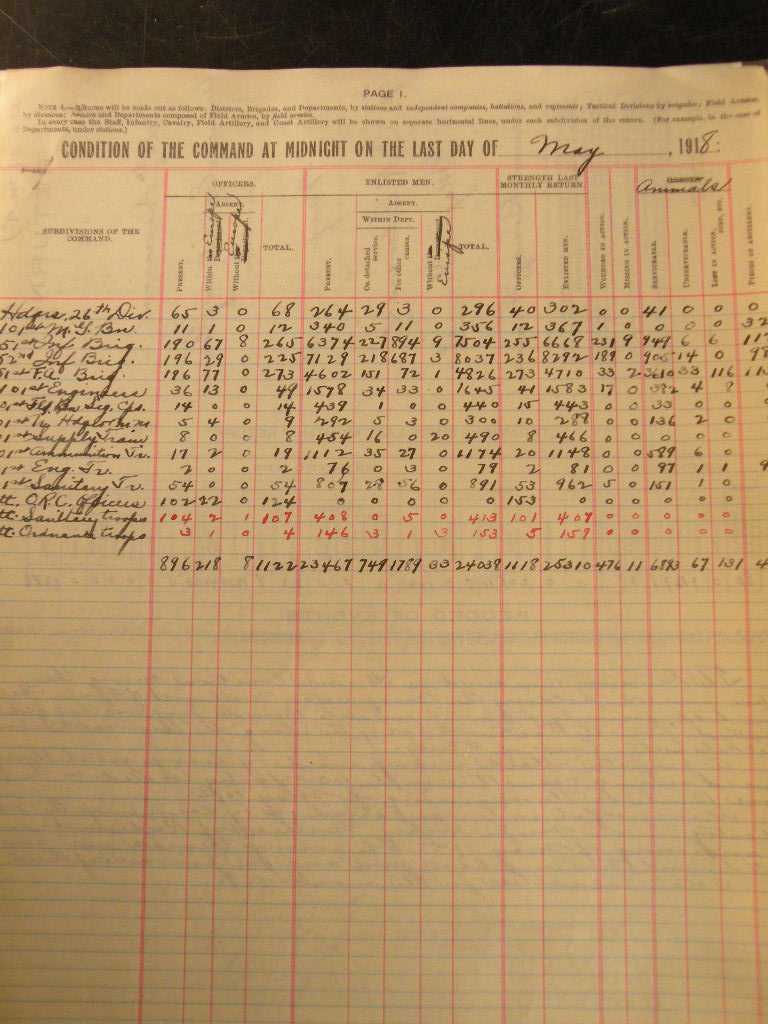 PAGE 1.
NOTE 4.—Returns will be made out as follows: Districts, Brigades, and Departments, by stations and independent companies, battalions, and regiments; Tactical Divisions by brigades; Field Armies,
by divisions; Armies and Departments composed of Field Armies, by field armies.
In every case the Staff, Infantry, Cavalry, Field Artillery, and Coast Artillery will be shown on separate horizontal lines, under each subdivision of the return. (For example, in the case of
Departments, under stations.)
CONDITION OF THE COMMAND AT MIDNIGHT ON THE LAST DAY OF May, 1918:
SUBDIVISIONS OF THE COMMAND.
OFFICERS. ENLISTED MEN. STRENGTH LAST MONTHLY RETURN. Animals
ABSENT. ABSENT.
WITHIN DEPT.
PRESENT. Within Europe Without Europe TOTAL. PRESENT. On detached service. For other causes. Without Europe TOTAL. OFFICERS. ENLISTED MEN. WOUNDED IN ACTION. MISSING IN ACTION. SERVICEABLE. UNSERVICEABLE. LOST IN ACTION, DIED, ETC. PIECES OF ARTILLERY.
Hdqrs. 26th Div. 65 3 0 68 264 29 3 0 296 40 302 0 0 41 0 0
101st M.G. Bn. 11 1 0 12 340 5 11 0 356 12 367 1 0 0 0 0 32
51st Inf. Brig. 190 67 8 265 6374 227 894 9 7504 255 6668 231 9 949 6 6
52nd Inf. Brig. 196 29 0 225 7129 218 687 3 8037 236 8292 189 0 905 14 0
51st F.A. Brig. 196 77 0 273 4602 151 72 1 4826 273 4710 33 2 3610 33 116
101st Engineers 36 13 0 49 1578 34 33 0 1645 41 1583 17 0 382 4 8
01st Fld. Bn. Sig. Cps. 14 0 0 14 439 1 0 0 440 15 443 0 0 33 0 0
01st Tr. Hdqrs. & M.P. 5 4 0 9 292 5 3 0 300 10 288 0 0 136 2 0
01st Supply Train 8 0 0 8 454 16 0 20 490 8 466 0 0 0 0 0
01st Ammunition Tr. 17 2 0 19 1112 35 27 0 1174 20 1148 0 0 589 6 0
1st Eng. Tr. 2 0 0 2 76 0 3 0 79 2 81 0 0 97 1 1
1st Sanitary Tr. 54 0 0 54 807 28 56 0 891 53 962 5 0 151 1 0
tt. O.R.C. Officers 102 22 0 124 0 0 0 0 0 153 0 0 0 0 0
tt. Sanitary troops 104 2 1 107 408 0 5 0 413 101 407 0 0 0 0 0
tt. Ordnance troops 3 1 0 4 146 3 1 3 153 5 159 0 0 0 0 0
896 218 8 1122 23467 749 1789 33 24039 1118 25310 476 11 6893 67 131